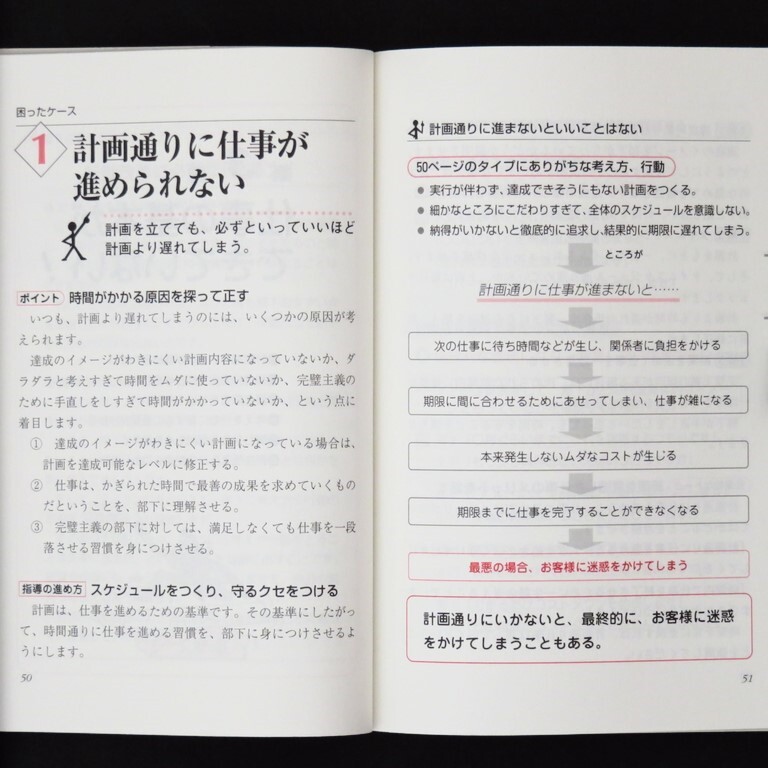 困ったケース
1
計画通りに仕事が
進められない
計画を立てても、必ずといっていいほど
計画より遅れてしまう。
ポイント 時間がかかる原因を探って正す
いつも、計画より遅れてしまうのには、いくつかの原因が考
えられます。
達成のイメージがわきにくい計画内容になっていないか、ダ
ラダラと考えすぎて時間をムダに使っていないか、完璧主義の
ために手直しをしすぎて時間がかかっていないか、という点に
着目します。
① 達成のイメージがわきにくい計画になっている場合は、
計画を達成可能なレベルに修正する。
② 仕事は、かぎられた時間で最善の成果を求めていくもの
だということを、部下に理解させる。
③ 完璧主義の部下に対しては、満足しなくても仕事を一段
落させる習慣を身につけさせる。
指導の進め方 スケジュールをつくり、守るクセをつける
計画は、仕事を進めるための基準です。その基準にしたがっ
て、時間通りに仕事を進める習慣を、部下に身につけさせるよ
うにします。
50
計画通りに進まないといいことはない
50ページのタイプにありがちな考え方、行動
● 実行が伴わず、達成できそうにもない計画をつくる。
● 細かなところにこだわりすぎて、全体のスケジュールを意識しない。
● 納得がいかないと徹底的に追求し、結果的に期限に遅れてしまう。
ところが
計画通りに仕事が進まないと……
次の仕事に待ち時間などが生じ、関係者に負担をかける
期限に間に合わせるためにあせってしまい、仕事が雑になる
本来発生しないムダなコストが生じる
期限までに仕事を完了することができなくなる
最悪の場合、お客様に迷惑をかけてしまう
計画通りにいかないと、最終的に、お客様に迷惑
をかけてしまうこともある。
51